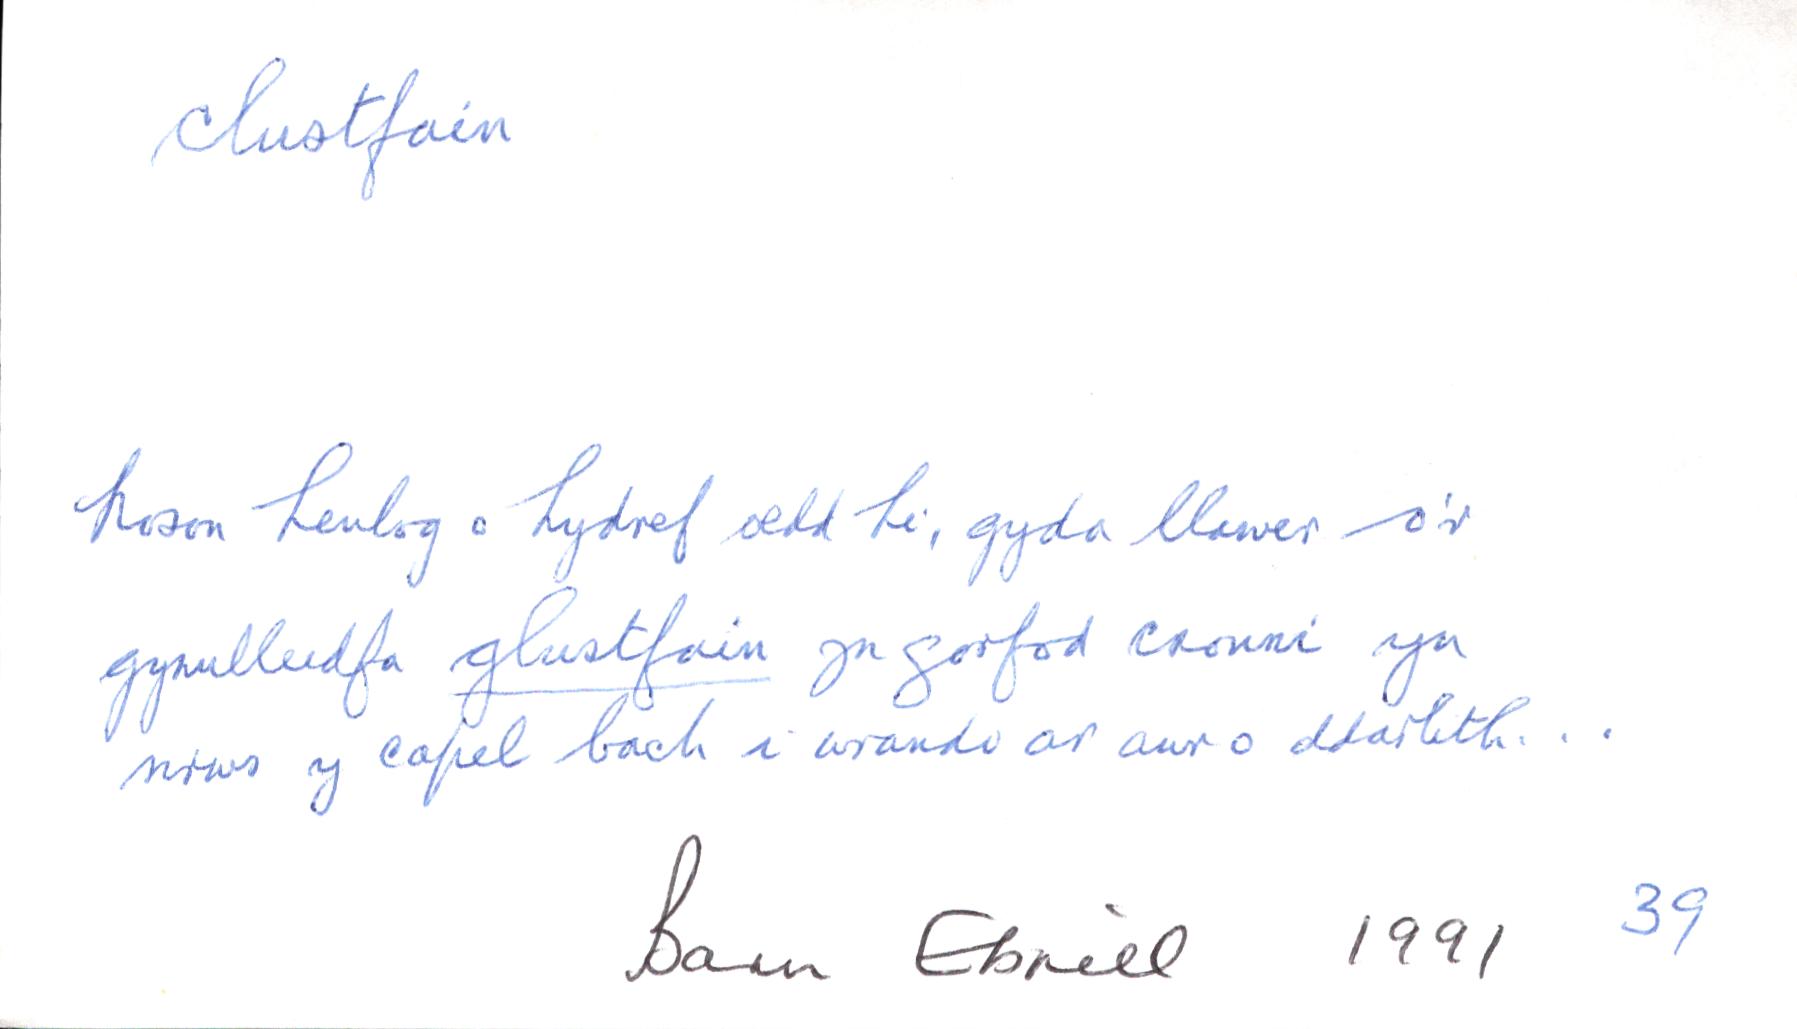 clustfain
noson heulog o hydref oedd hi, gyda llawer o'r
gynulleidfa glustfain yn gorfod cronni yn
nrws y capel bach i wrando ar awr o ddarlith...
Barn Ebrill 1991 39